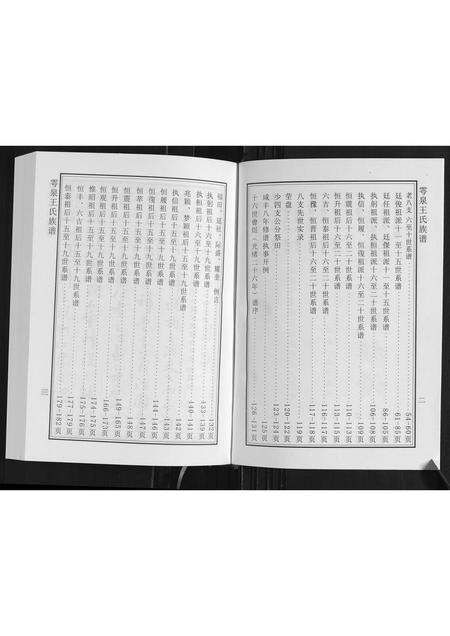 雩泉王氏族谱
老八支六至十世系谱 54-60页
廷俊祖派十一至十五世系谱 61-85页
廷任祖派、廷傑祖派十一至十五世系谱 86-105页
执躬祖派、执桓祖派十六至二十世系谱 106-108页
执信、恒履、恒復祖派十六至二十世系谱 109页
恒震祖后十六至二十世系谱 110-113页
恒升祖后十六至二十世系谱 113-115页
六吉、恒泰祖后十六至二十世系谱 116-117页
恒豫、恒晋祖后十六至二十世系谱 117-118页
八支先世实录 119页
茔盘 120-122页
少四支公分祭田 123-124页
咸丰八年修谱执事开例 125页
十六世會煜（光绪二十六年）谱序 126-131页
二
雩泉王氏族谱
福田、廷柱、际盛、耀奎例言 132页
执躬祖后十六至十九世系谱 133-139页
执桓祖后十五至十九世系谱 140-141页
兆颖、梦颖祖后十五至十九世系谱 142页
执信祖后十五至十九世系谱 143页
恒履祖后十五至十九世系谱 144-146页
恒復祖后十五至十九世系谱 147页
恒萃祖后十五至十九世系谱 148页
恒震祖后十五至十九世系谱 149-165页
恒升祖后十五至十九世系谱 166-173页
恒观祖后十五至十九世系谱 174-175页
惟昭祖后十五至十九世系谱 175-176页
恒丰、六吉祖后十五至十九世系谱 177-179页
恒泰祖后十五至十九世系谱 179-182页
三